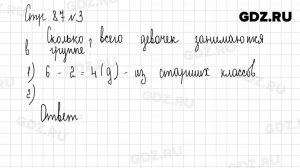 GDZ.RU
Стр 87 №3
Сколько всего девочек занимаются
в группе?
1) 6 - 2 = 4 (д) - из старших классов
2)
Ответ
GDZ.RU
GDZ.RU